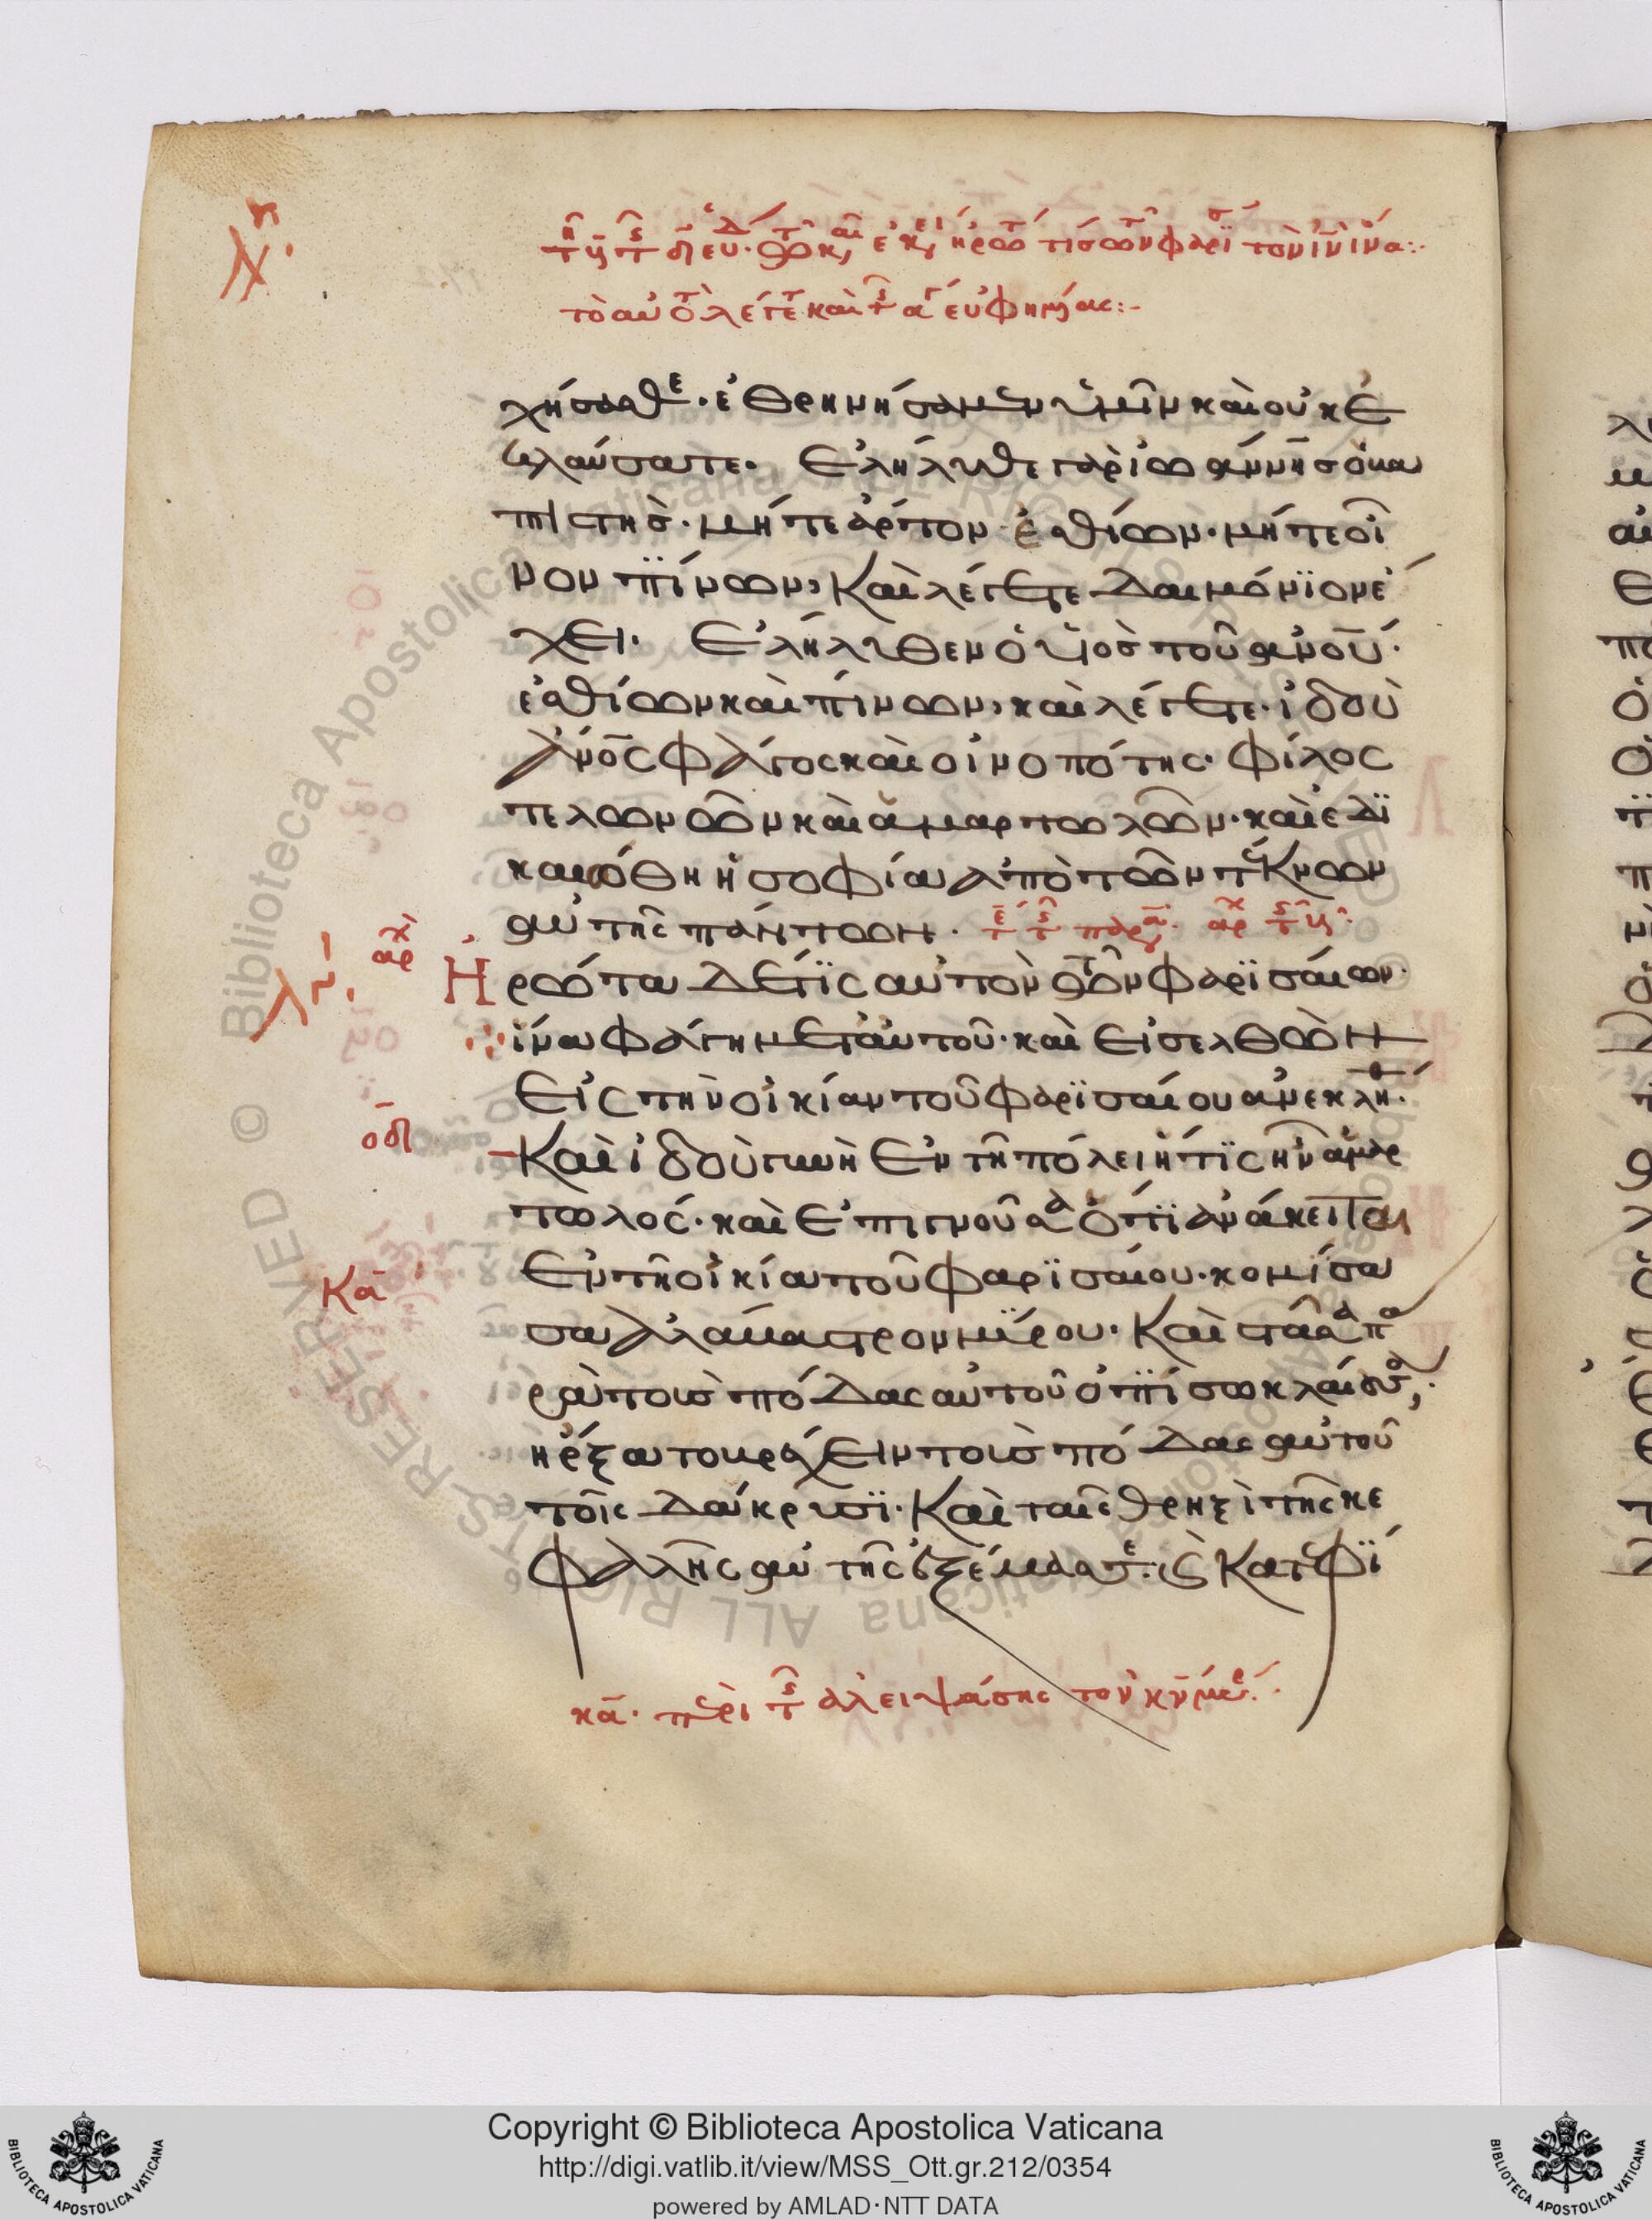 χήσασθε· ἐθρηνήσαμεν ὑμῖν καὶ οὐκ ἐ
κλαύσατε· Ἐλήλυθε γὰρ ἰωάννης ὁ βα
πτιστὴς· μήτε ἄρτον ἐσθίων· μήτε οἶ
νον πίνων, Καὶ λέγετε Δαιμόνιον ἔ
χει· Ἐλήλυθεν ὁ υἱὸς τοῦ ἀνου·
ἐσθίων καὶ πίνων, καὶ λέγετε· ἰδοὺ
ἄνος φάγος καὶ οἰνοπότης· φίλος
τελωνῶν καὶ ἁμαρτωλῶν· καὶ ἐδι
καιώθη ἡ σοφία ἀπὸ τῶν τέκνων
αὐτῆς πάντων·
Ἠρώτα Δέ τις αὐτὸν τῶν φαρισαίων·
ἵνα φάγη μετ' αὐτοῦ· καὶ εἰσελθὼν
εἰς τὴν οἰκίαν τοῦ φαρισαίου ἀνεκλήθ·
Καὶ ἰδοὺ γυνὴ ἐν τῆ πόλει ἥτις ἦν ἁμαρ
τωλός· καὶ ἐπιγνοῦσα ὅτι ἀνάκειται
ἐν τῆ οἰκία τοῦ φαρισαίου· κομίσα
σα ἀλάβαστρον μύρου· Καὶ στᾶσα πα
ρὰ τοὺς πόδας αὐτοῦ ὀπίσω κλαίουσα,
ἤρξατο βρέχειν τοὺς πόδας αὐτοῦ
τοῖς δάκρυσι· Καὶ ταῖς θριξὶ τῆς κε
φαλῆς αὐτῆς ἐξέμασσε· Καὶ κατεφί
κα· περὶ τῆς ἀλειψάσης τὸν κν μύρω
Copyright © Biblioteca Apostolica Vaticana
http://digi.vatlib.it/view/MSS_Ott.gr.212/0354
powered by AMLAD·NTT DATA
BIBLIOTECA APOSTOLICA VATICANA
BIBLIOTECA APOSTOLICA VATICANA